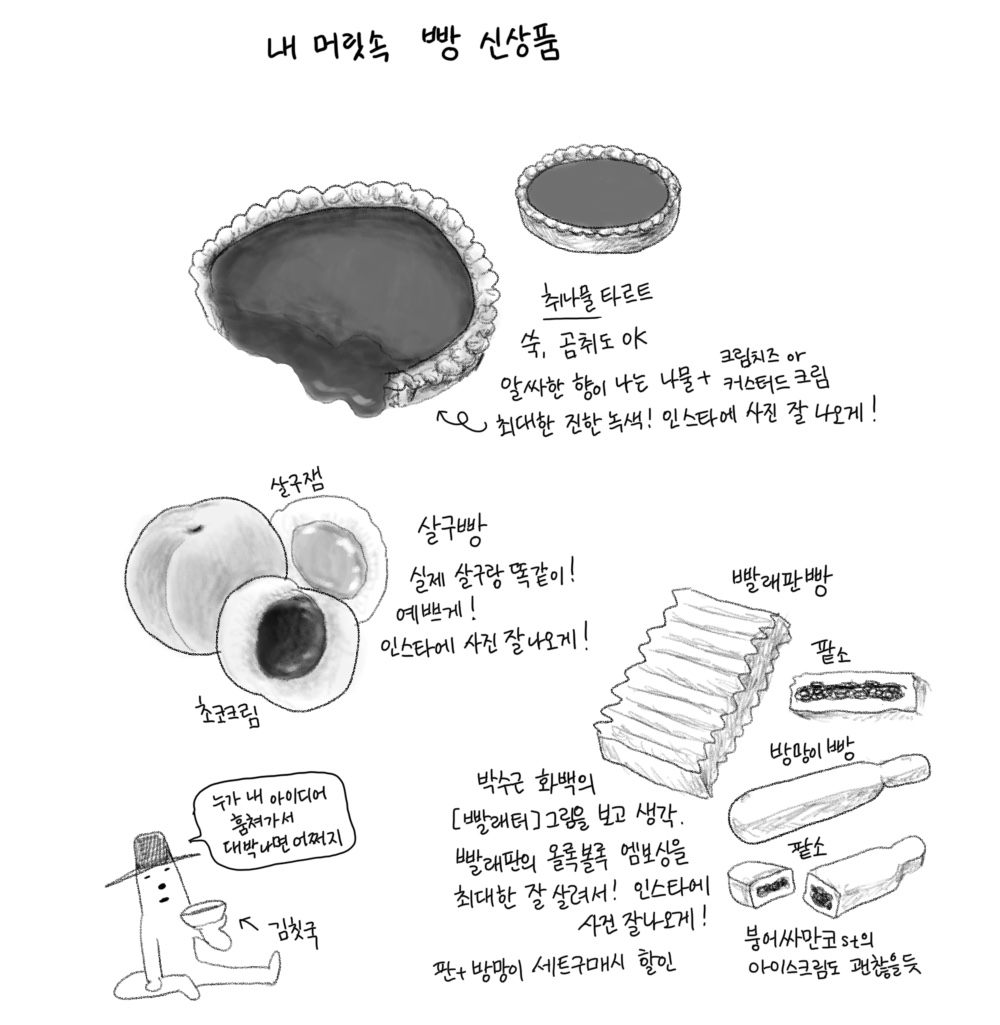 내 머릿속 빵 신상품
취나물 타르트
쑥, 곰취도 OK
알싸한 향이 나는 나물 + 크림치즈 or
커스터드 크림
최대한 진한 녹색! 인스타에 사진 잘 나오게!
살구잼
살구빵
실제 살구랑 똑같이!
예쁘게!
인스타에 사진 잘나오게!
초코크림
빨래판빵
팥소
방망이 빵
팥소
박수근 화백의
[빨래터] 그림을 보고 생각.
빨래판의 올록볼록 엠보싱을
최대한 잘 살려서! 인스타에
사진 잘나오게!
판+방망이 세트구매시 할인
붕어싸만코 st의
아이스크림도 괜찮을듯
누가 내 아이디어
훔쳐가서
대박나면 어쩌지
김칫국